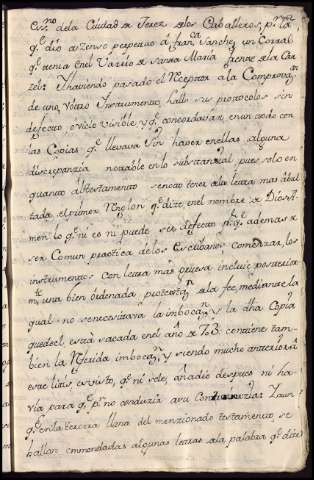 Ess.no de la Ciudad de Jerez de los Caballeros, p.r la
q.e dio a zenso perpetuo a fran.ca Sanchez un Corral
q.e tenia en el Varrio de Santa Maria frente de la Car
zel: Y haviendo pasado el Rezeptor a la Comprovaz.n
de uno, y otro Instrumento, hallo sus protocolos sin
defecto o vicio visible y q.e concordavan en un todo con
las Copias q.e llevava sin haver en ellas alguna
discrepanzia notable en lo substanzial pues solo en
quanto al testamento se nota tener la letra mas abul
tada el primer Renglon q.e dize, en el nombre de Dios A
men lo q.e ni es ni puede ser defecto p.r q.e ademas de
ser Comun practica de los Escribanos comenzar los
instrumentos con letra mas gruesa incluie posterior
m.te una bien ordenada protestaz.n de la fee, mediante la
qual no se necesitaria la imbocaz.n y la dha Copia
que de el está sacada en el año de 708. contiene tam
bien la referida imbocaz.n y siendo mucho anterior a
este litis es visto, q.e ni se le añadio despues ni ha
via para q.e p.r no conduzir a su
q.e en la tercera llana del menzionado testamento se
hallan enmendadas algunas letras de la palabra q.e dize